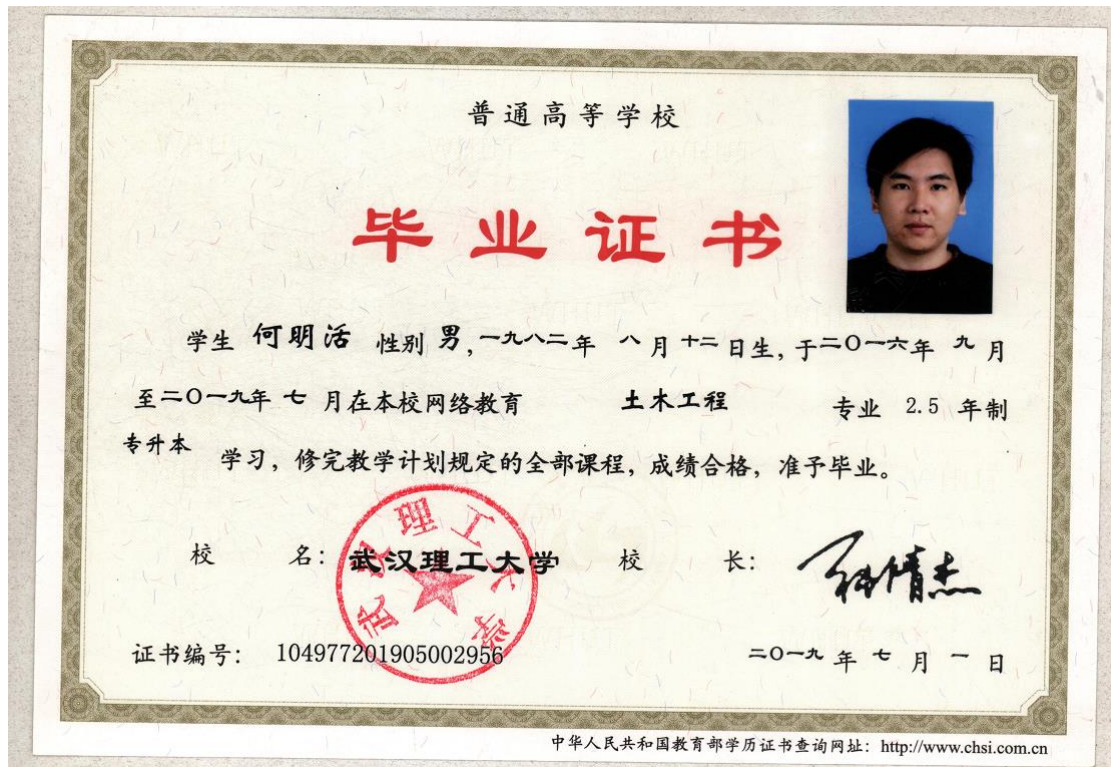 普通高等学校
毕业证书
学生 何明活 性别 男，一九八二年 八 月 十二 日生，于二〇一六年 九 月
至二〇一九年 七 月在本校网络教育 土木工程 专业 2.5 年制
专升本 学习，修完教学计划规定的全部课程，成绩合格，准予毕业。
校 名：武汉理工大学 校 长：
武汉理工大学
证书编号： 104977201905002956 二〇一九 年 七 月 一 日
中华人民共和国教育部学历证书查询网址：http://www.chsi.com.cn